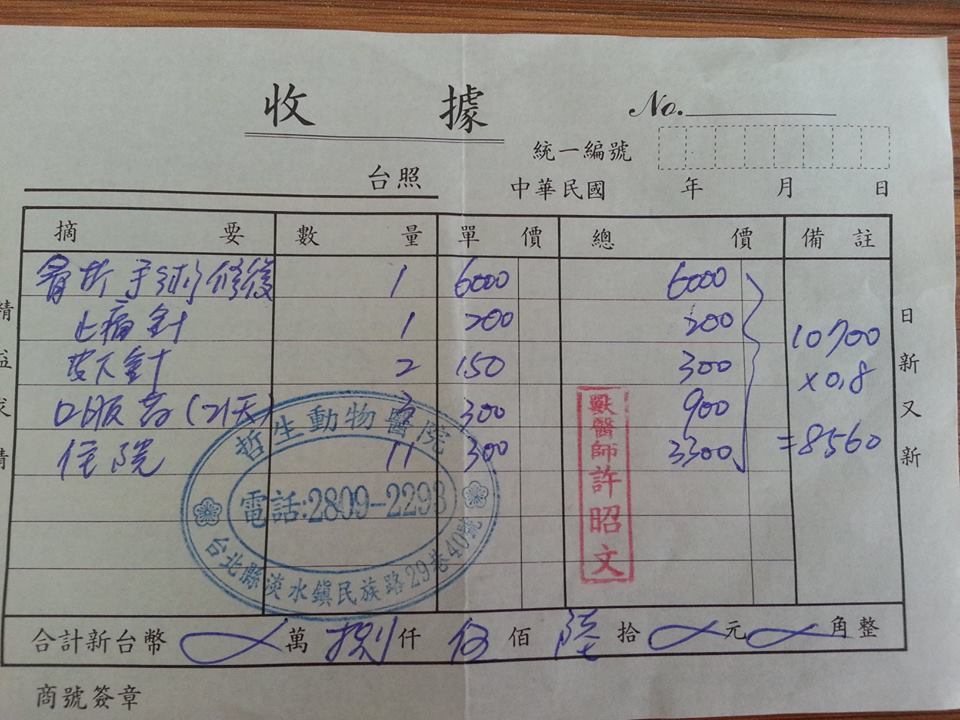 收據
No.
統一編號
台照
中華民國 年 月 日
摘要 數量 單價 總價 備註
骨折手術修復 1 6000 6000
止痛針 1 200 200
皮下針 2 150 300
口服藥(21天) 3 300 900
住院 11 300 3300
10700
×0.8
=8560
精益求精
日新又新
哲生動物醫院
電話:2809-2293
台北縣淡水鎮民族路29巷40號
獸醫師許昭文
合計新台幣 萬 捌 仟 伍 佰 陸 拾 元 角整
商號簽章